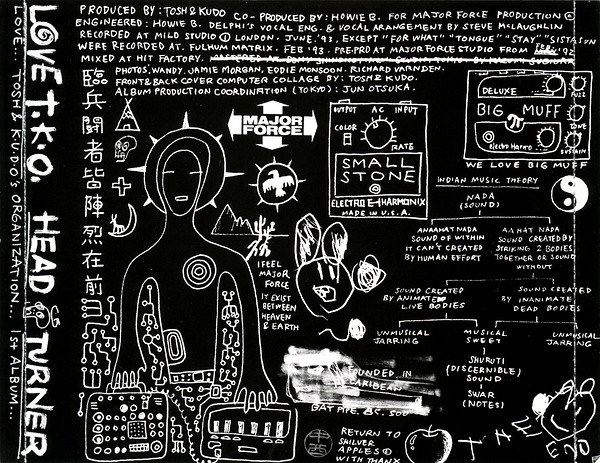 LOVE T.K.O. HEAD TURNER
LOVE... TOSH & K.U.D.O'S ORGANIZATION... 1st ALBUM...
PRODUCED BY: TOSH & KUDO CO-PRODUCED BY: HOWIE B. FOR MAJOR FORCE PRODUCTION
ENGINEERED: HOWIE B. DELPHI'S VOCAL ENG. & VOCAL ARANGEMENT BY STEVE McLAUGHLIN
RECORDED AT MILO STUDIO LONDON. JUNE. '93. EXCEPT "FOR WHAT" "TONGUE" "STAY" "SISTASUN
WERE RECORDED AT. FULHUM MATRIX. FEB '93. PRE-PRD AT MAJOR FORCE STUDIO FROM '92
MIXED AT HIT FACTORY.
PHOTOS, WANDY, JAMIE MORGAN, EDDIE MONSOON. RICHARD
FRONT & BACK COVER COMPUTER COLLAGE BY: TOSH & KUDO.
ALBUM PRODUCTION COORDINATION (TOKYO): JUN OTSUKA.
臨兵闘者皆陣烈在前
MAJOR
FORCE
OUTPUT AC INPUT
COLOR
RATE
SMALL
STONE
ELECTRO-HARMONIX
MADE IN U.S.A.
DELUXE
FUZZ
BIG π MUFF
TONE
Electro Harmo
SUSTAIN
WE LOVE BIG MUFF
INDIAN MUSIC THEORY
NADA
(SOUND)
ANAAHAT NADA
SOUND OF WITHIN
IT CAN'T CREATED
BY HUMAN EFFORT
AAHAT NADA
SOUND CREATED BY
STRIKING 2 BODIES
TOGETHER OR SOUND
WITHOUT
SOUND CREATED
BY ANIMATE
LIVE BODIES
SOUND CREATED
BY INANIMATE
DEAD BODIES
UNMUSICAL
JARRING
MUSICAL
SWEET
UNMUSICAL
JARRING
SHURUTI
(DISCERNIBLE)
SOUND
SWAR
(NOTES)
I FEEL
MAJOR
FORCE
IT EXIST
BETWEEN
HEAVEN
& EARTH
FOUNDED IN
CARIBEAN
BAT PIPE. BC. 500
RETURN TO
SHILVER
APPLES
WITH THANX
THE
END